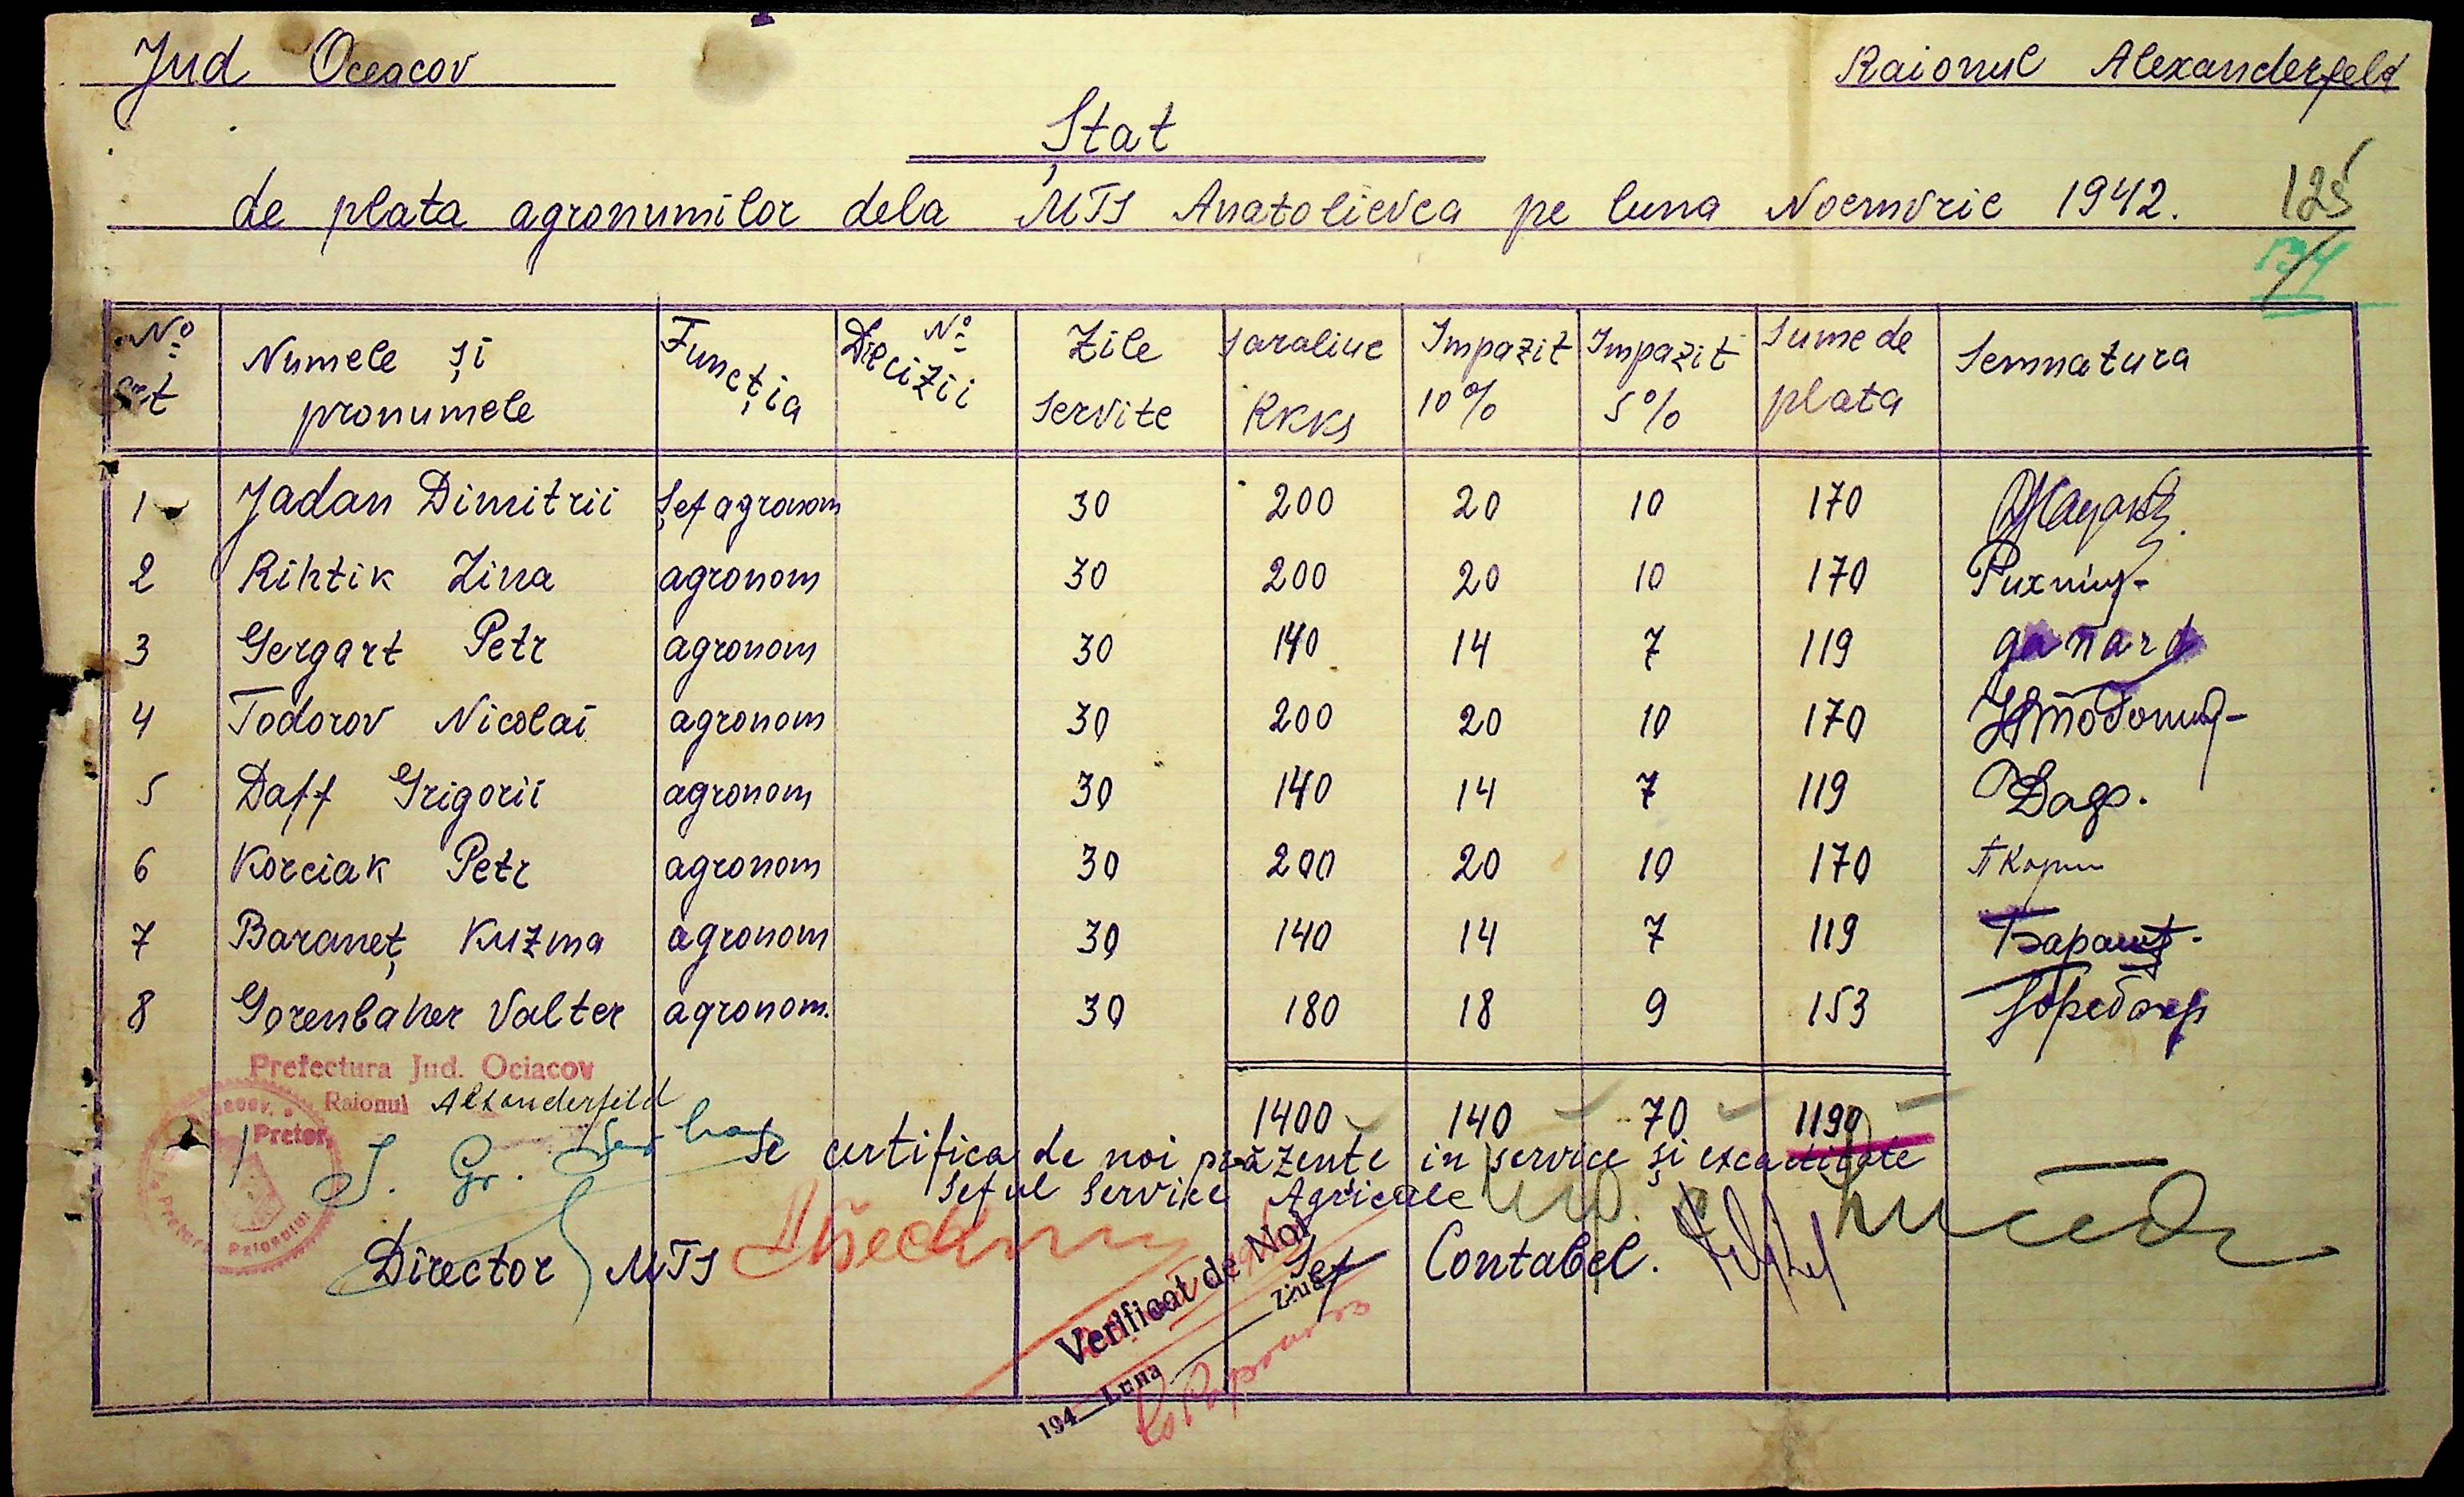 Jud Oceacov
Raionul Alexanderfeld
Ștat
de plata agronumilor dela MTS Anatolievca pe luna Noemvrie 1942.
125
No Numele și Funcția No Zile Saraliue Impazit Impazit Sume de Semnatura
crt pronumele Diecizii Servite RKKS 10% 5% plata
1 Jadan Dimitrii Șef agronom 30 200 20 10 170
2 Rihtik Zina agronom 30 200 20 10 170 Рихтик
3 Gergart Petr agronom 30 140 14 7 119
4 Todorov Nicolai agronom 30 200 20 10 170
5 Daff Grigorii agronom 30 140 14 7 119
6 Korciak Petr agronom 30 200 20 10 170
7 Baraneț Kuzma agronom 30 140 14 7 119
8 Gorenbaher Valter agronom. 30 180 18 9 153
Prefectura Jud. Ociacov
Raionul Alexanderfeld
Pretor,
1400 140 70 1190
Se certifica de noi prăzențe in service și
Șeful Service Agricole
Director MTS
Șef Contabel.
Verificat de Noi
194 Luna Ziua